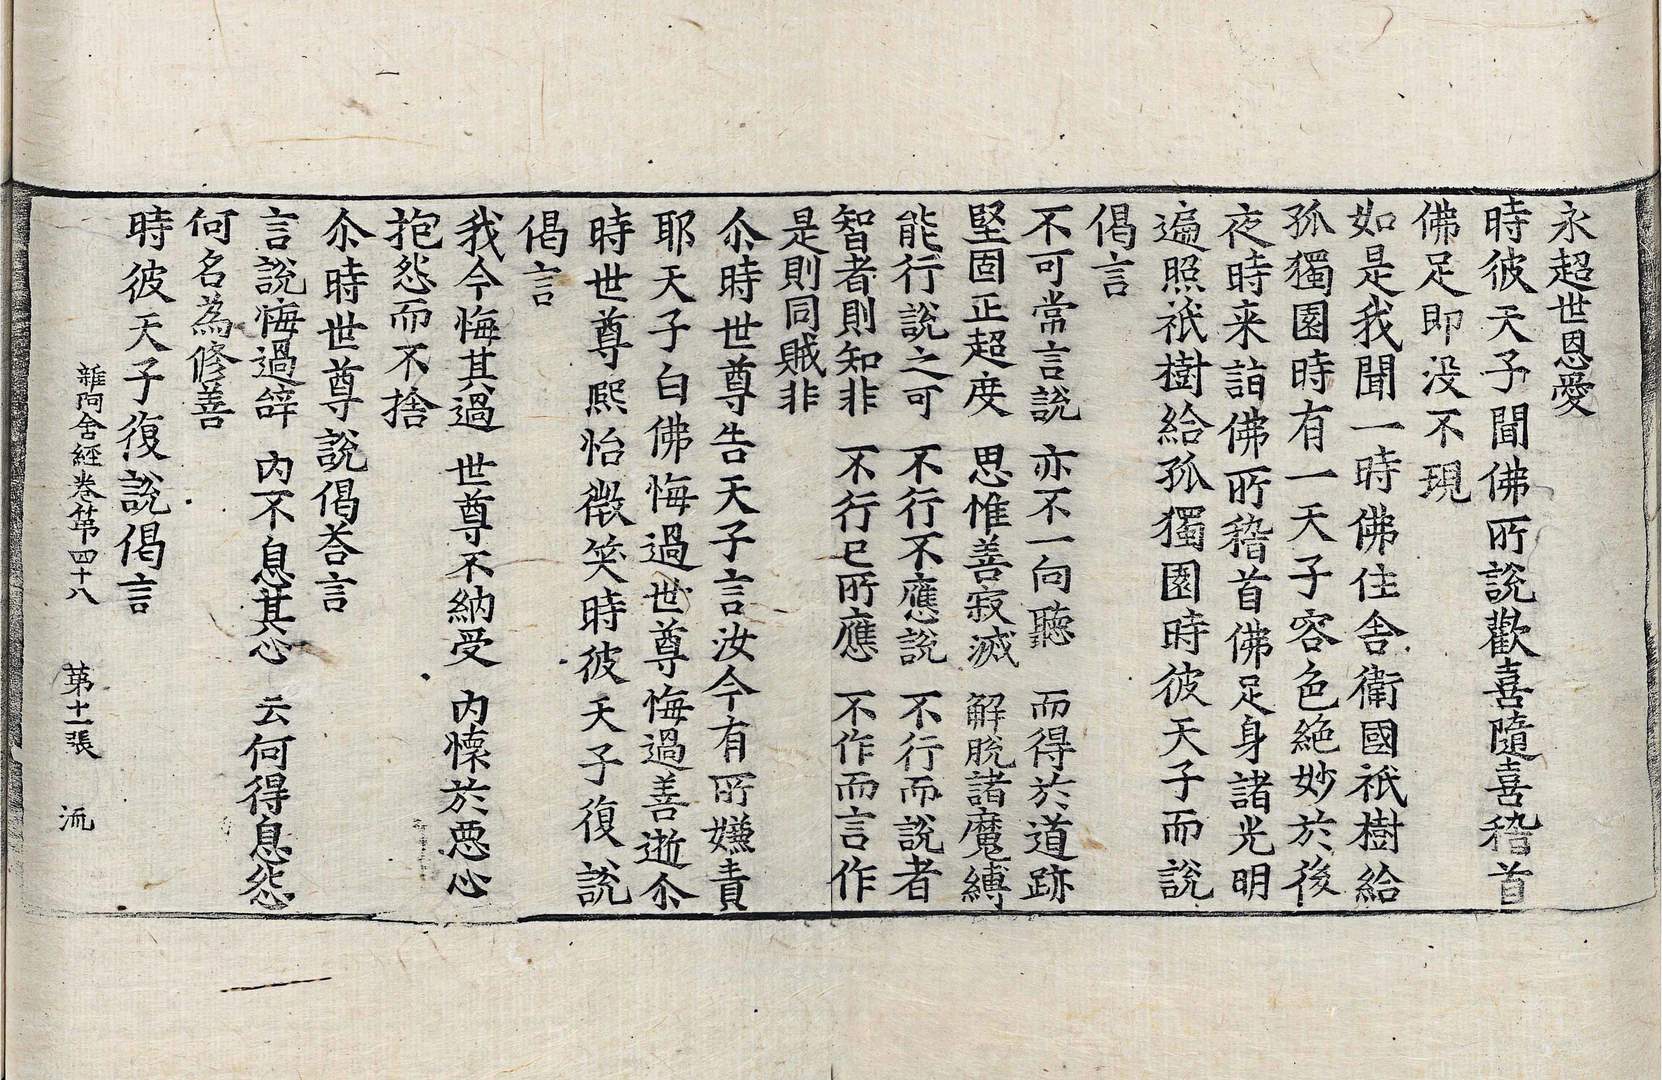 永超世恩愛
時彼天子聞佛所說歡喜隨喜稽首
佛足即没不現
如是我聞一時佛住舍衛國祇樹給
孤獨園時有一天子容色絶妙於後
夜時来詣佛所稽首佛足身諸光明
遍照祇樹給孤獨園時彼天子而說
偈言
不可常言說　亦不一向聽　而得於道跡
堅固正超度　思惟善寂滅　解脫諸魔縛
能行說之可　不行不應說　不行而說者
智者則知非　不行已所應　不作而言作
是則同賊非
尒時世尊告天子言汝今有所嫌責
耶天子白佛悔過世尊悔過善逝尒
時世尊熙怡微笑時彼天子復說
偈言
我今悔其過　世尊不納受　內懷於惡心
抱怨而不捨
尒時世尊說偈荅言
言說悔過辝　內不息其心　云何得息怨
何名為修善
時彼天子復說偈言
雜阿含經卷第四十八　第十一張　流